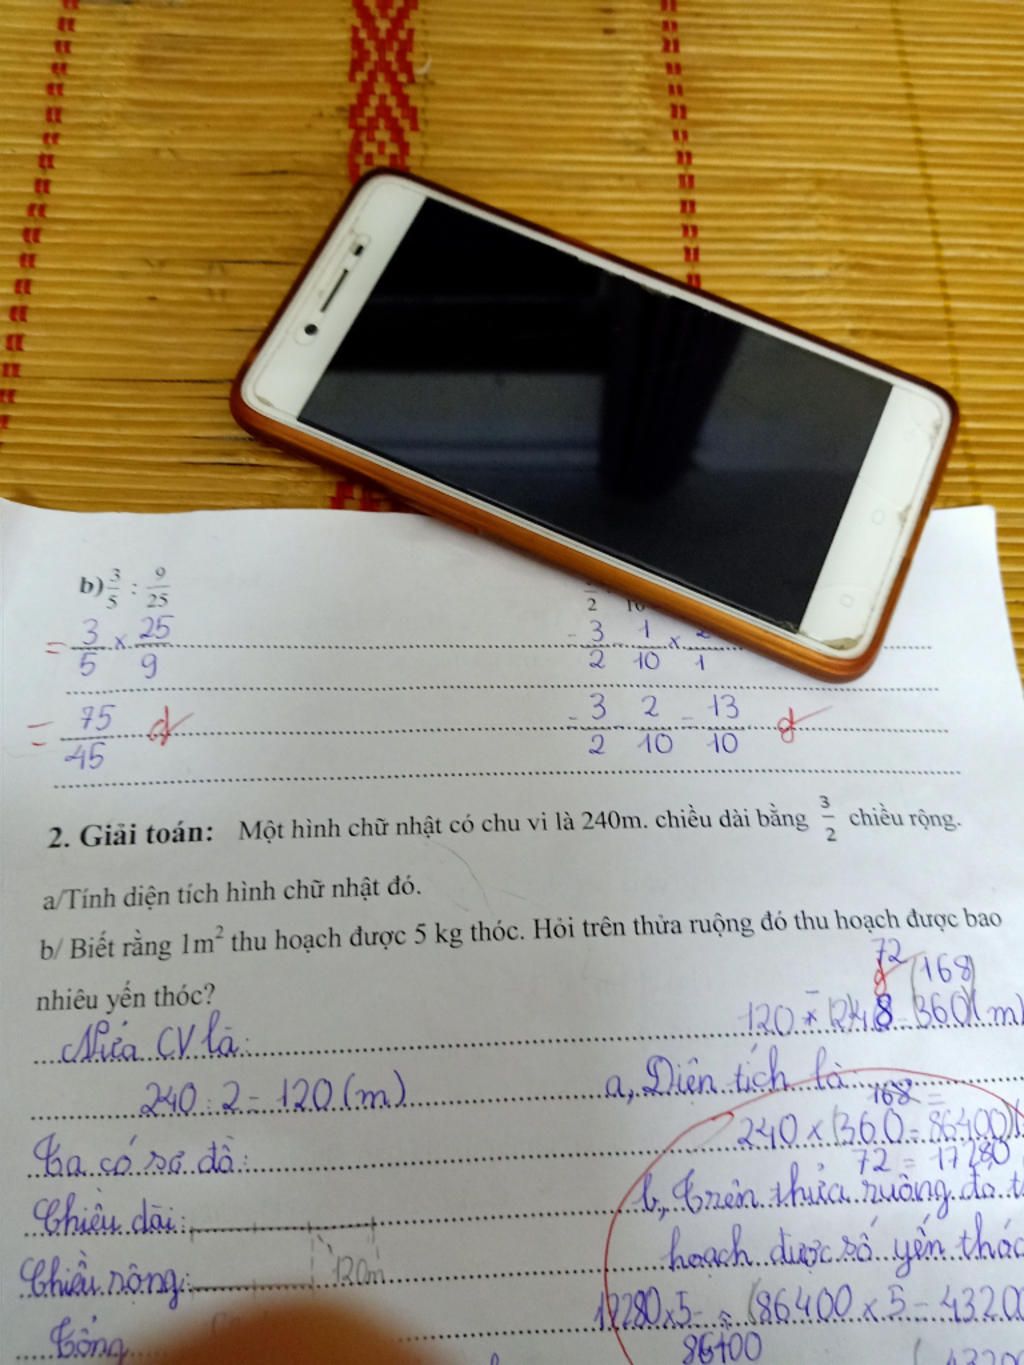 b) 3/5 : 9/25
= 3/5 × 25/9
= 75/45
2 10
= 3/2 - 1/10 × 2/1
= 3/2 - 2/10 = 13/10
2. Giải toán: Một hình chữ nhật có chu vi là 240m. chiều dài bằng 3/2 chiều rộng.
a/Tính diện tích hình chữ nhật đó.
b/ Biết rằng 1m² thu hoạch được 5 kg thóc. Hỏi trên thửa ruộng đó thu hoạch được bao
nhiêu yến thóc?
Nửa CV là:
240 : 2 = 120 (m)
Ta có sơ đồ:
Chiều dài:
Chiều rộng:
120m
Tổng
72
(168)
120 × 248 = (360) (m)
a, Diện tích là:
168 =
240 × (360 = 86400)
72 = 17280
b, Trên thửa ruộng đó t
hoạch được số yến thóc
17280 × 5 = (86400 × 5 = 43200
86400